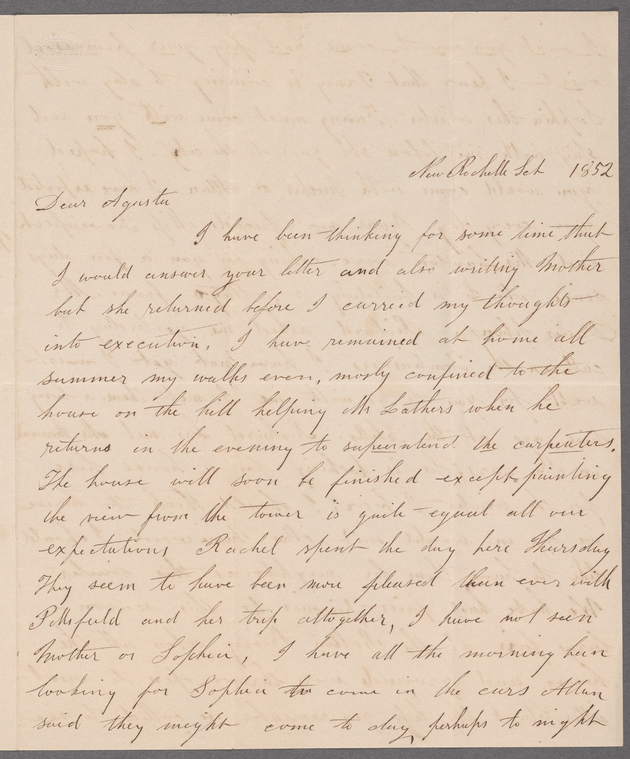 New Rochelle Sct 1852
Dear Agusta
I have been thinking for some time that
I would answer your letter and also writing Mother
but she returned before I carreid my thoughts
into execution. I have remained at home all
summer my walks even, mosly confined to the
house on the hill helping Mr Lathers when he
returns in the evening to supeintend the carpenters.
The house will soon be finished except painting
the view from the tower is quite equal all our
expectations Rachel spent the day here Thursday
They seem to have been more pleased than ever with
Pittsfield and her trip altogether, I have not seen
Mother or Sophia, I have all the morning been
looking for Sophia to come in the cars Allan
said they might come to day perhaps to night